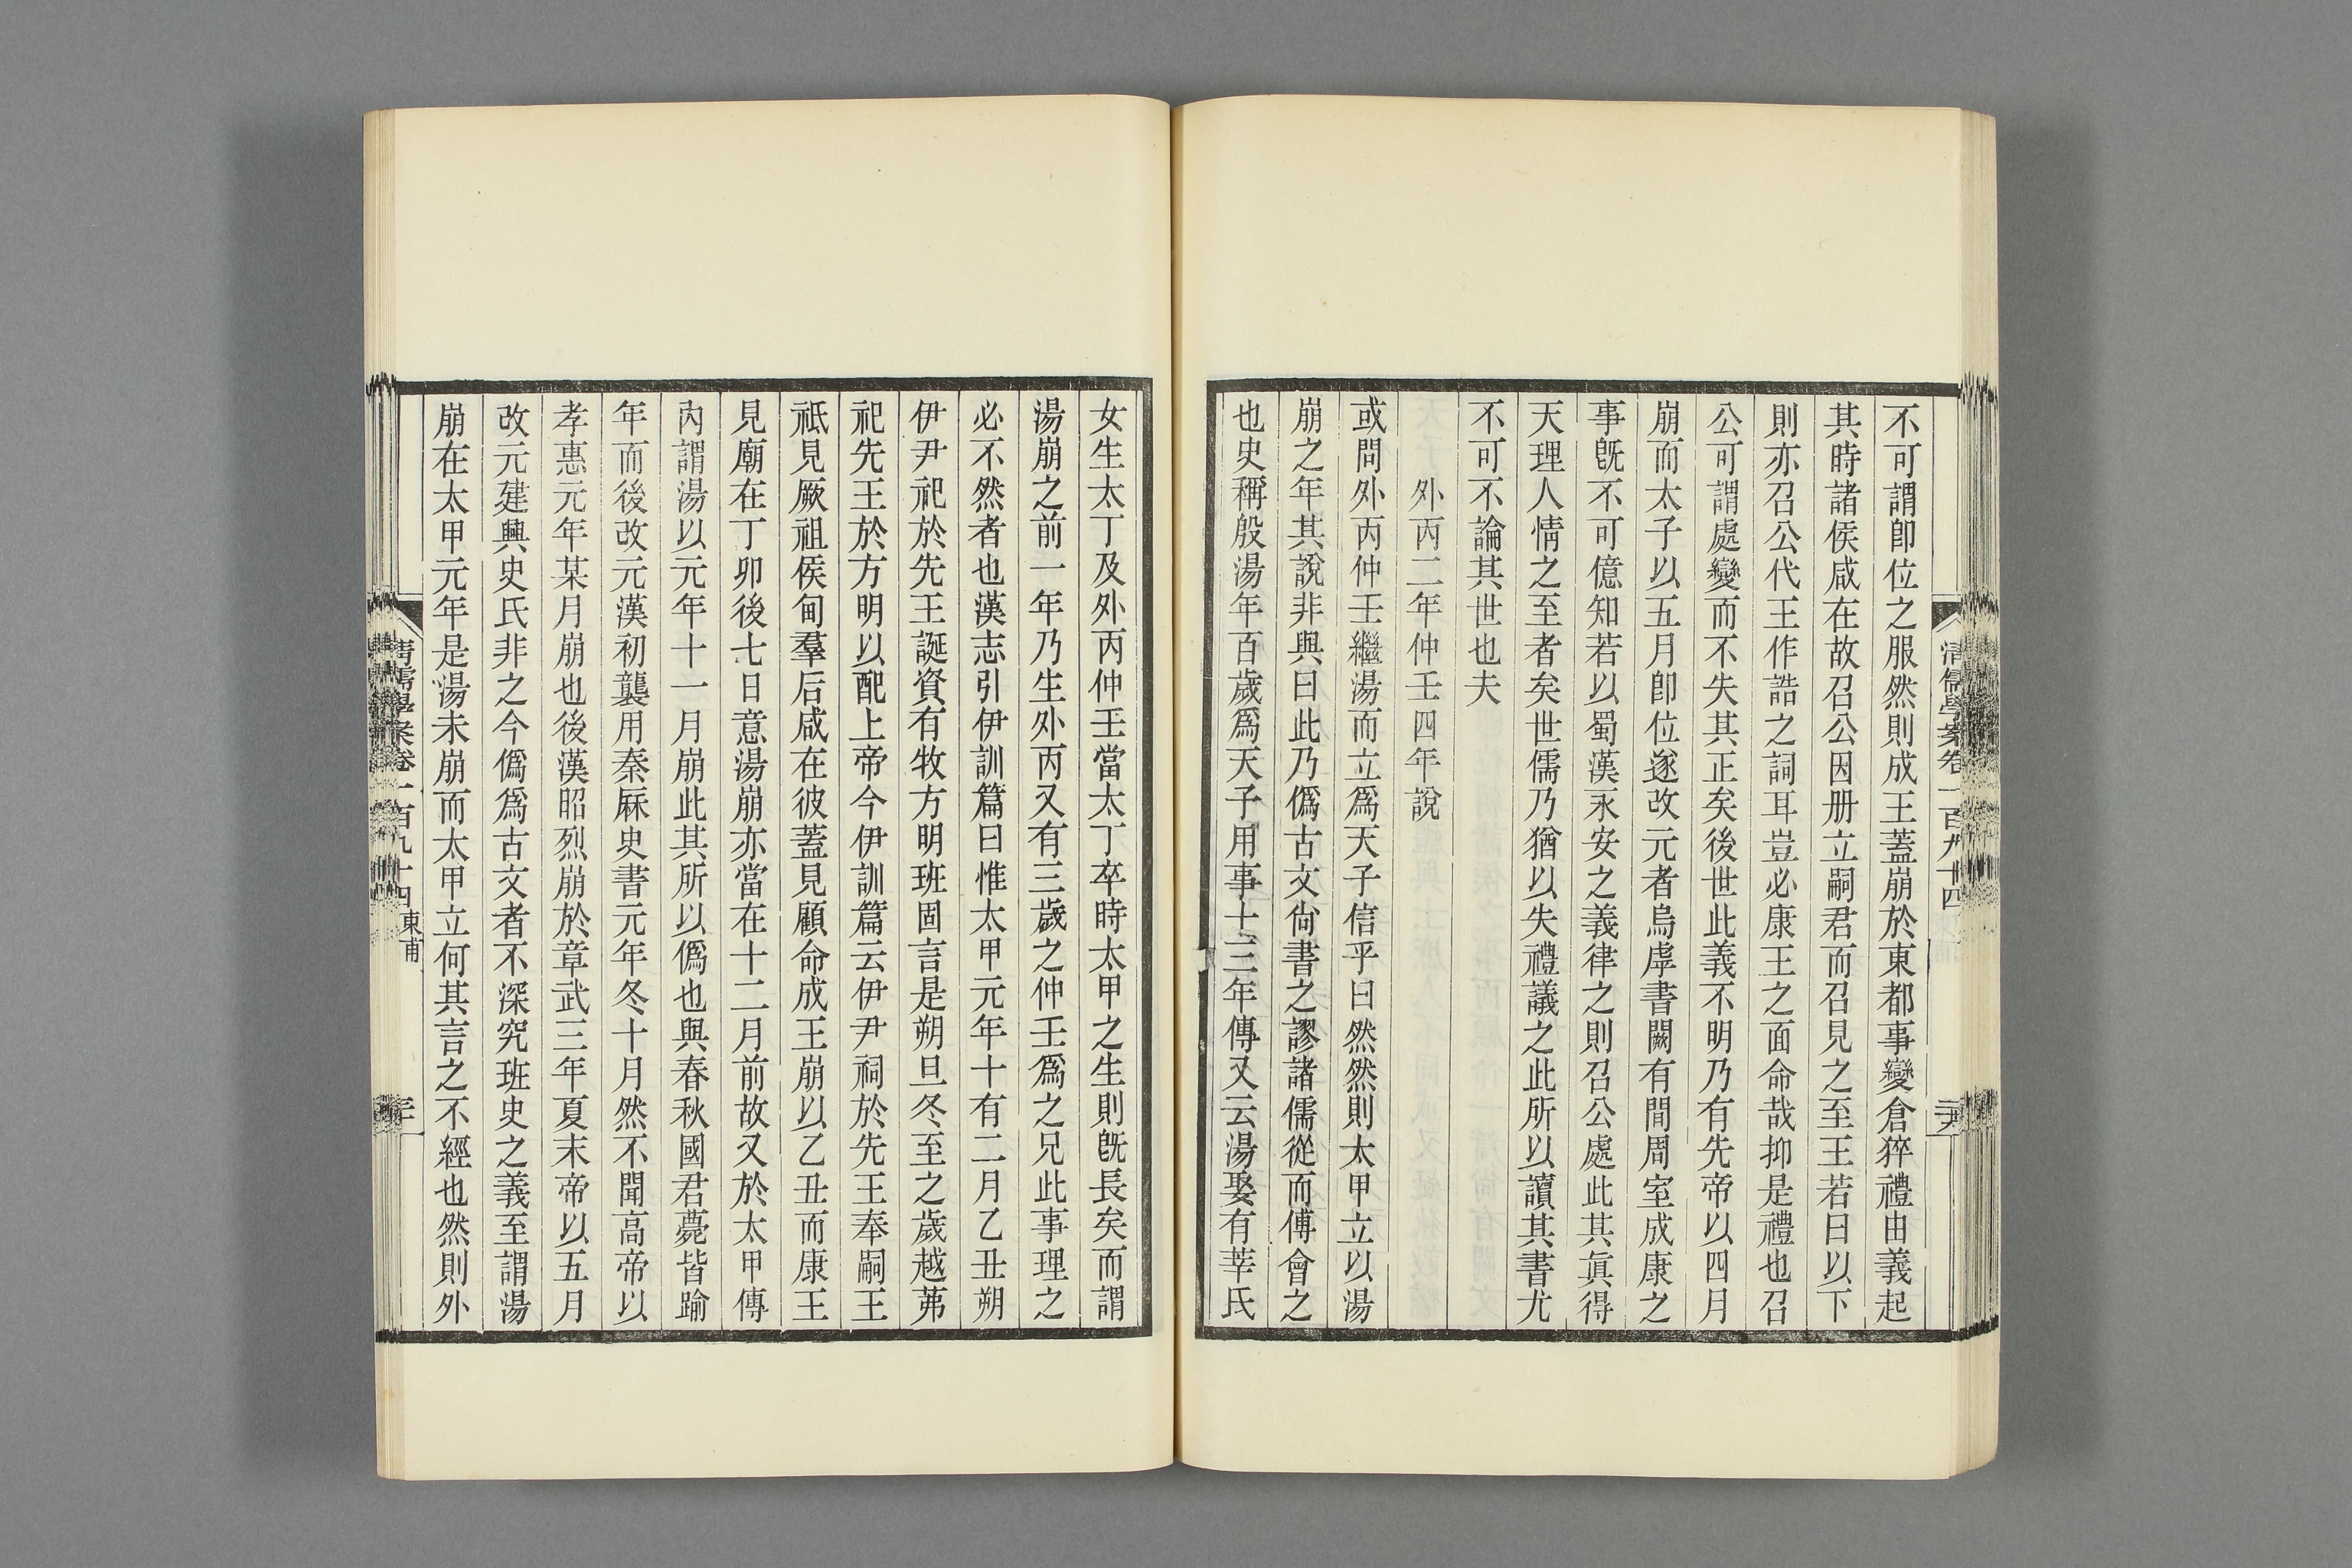 不可謂卽位之服然則成王蓋崩於東都事變倉猝禮由義起
其時諸侯咸在故召公因册立嗣君而召見之至王若曰以下
則亦召公代王作誥之詞耳豈必康王之面命哉抑是禮也召
公可謂處變而不失其正矣後世此義不明乃有先帝以四月
崩而太子以五月卽位遂改元者烏虖書闕有間周室成康之
事旣不可億知若以蜀漢永安之義律之則召公處此其眞得
天理人情之至者矣世儒乃猶以失禮議之此所以讀其書尤
不可不論其世也夫
外丙二年仲壬四年說
或問外丙仲壬繼湯而立爲天子信乎曰然然則太甲立以湯
崩之年其說非與曰此乃僞古文尙書之謬諸儒從而傅會之
也史稱殷湯年百歲爲天子用事十三年傳又云湯娶有莘氏
清儒學案卷一百九十四
女生太丁及外丙仲壬當太丁卒時太甲之生則旣長矣而謂
湯崩之前一年乃生外丙又有三歲之仲壬爲之兄此事理之
必不然者也漢志引伊訓篇曰惟太甲元年十有二月乙丑朔
伊尹祀於先王誕資有牧方明班固言是朔旦冬至之歲越茀
祀先王於方明以配上帝今伊訓篇云伊尹祠於先王奉嗣王
祗見厥祖侯甸羣后咸在彼蓋見顧命成王崩以乙丑而康王
見廟在丁卯後七日意湯崩亦當在十二月前故又於太甲傳
內謂湯以元年十一月崩此其所以僞也與春秋國君薨皆踰
年而後改元漢初襲用秦厤史書元年冬十月然不聞高帝以
孝惠元年某月崩也後漢昭烈崩於章武三年夏末帝以五月
改元建興史氏非之今僞爲古文者不深究班史之義至謂湯
崩在太甲元年是湯未崩而太甲立何其言之不經也然則外
清儒學案卷一百九十四 東甫